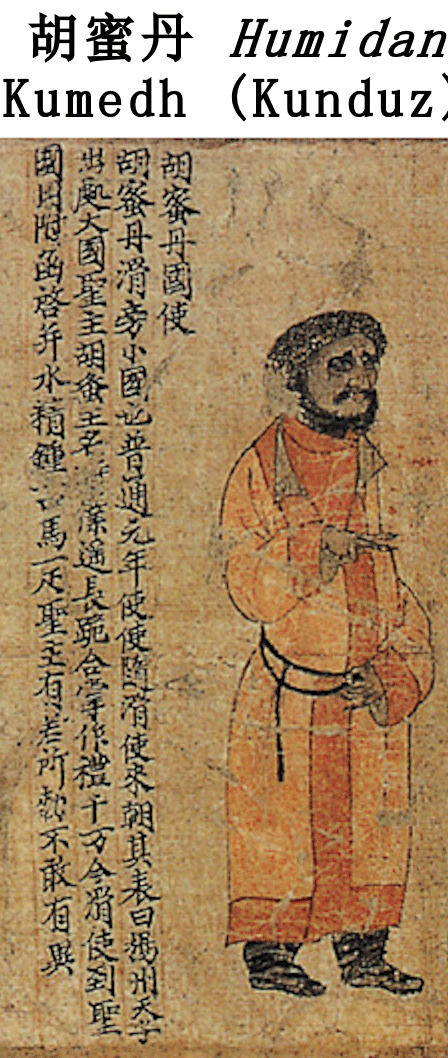 胡蜜丹 Humidan
Kumedh (Kunduz)
胡蜜丹國使
胡蜜丹滑旁小國也普通元年使使隨滑使来朝其表曰揚州天子
出處大國聖主胡蜜王名 遥長跪合掌作禮千万今滑使到聖
國因附函啓并水精鍾一口馬一疋聖主有若所勑不敢有異